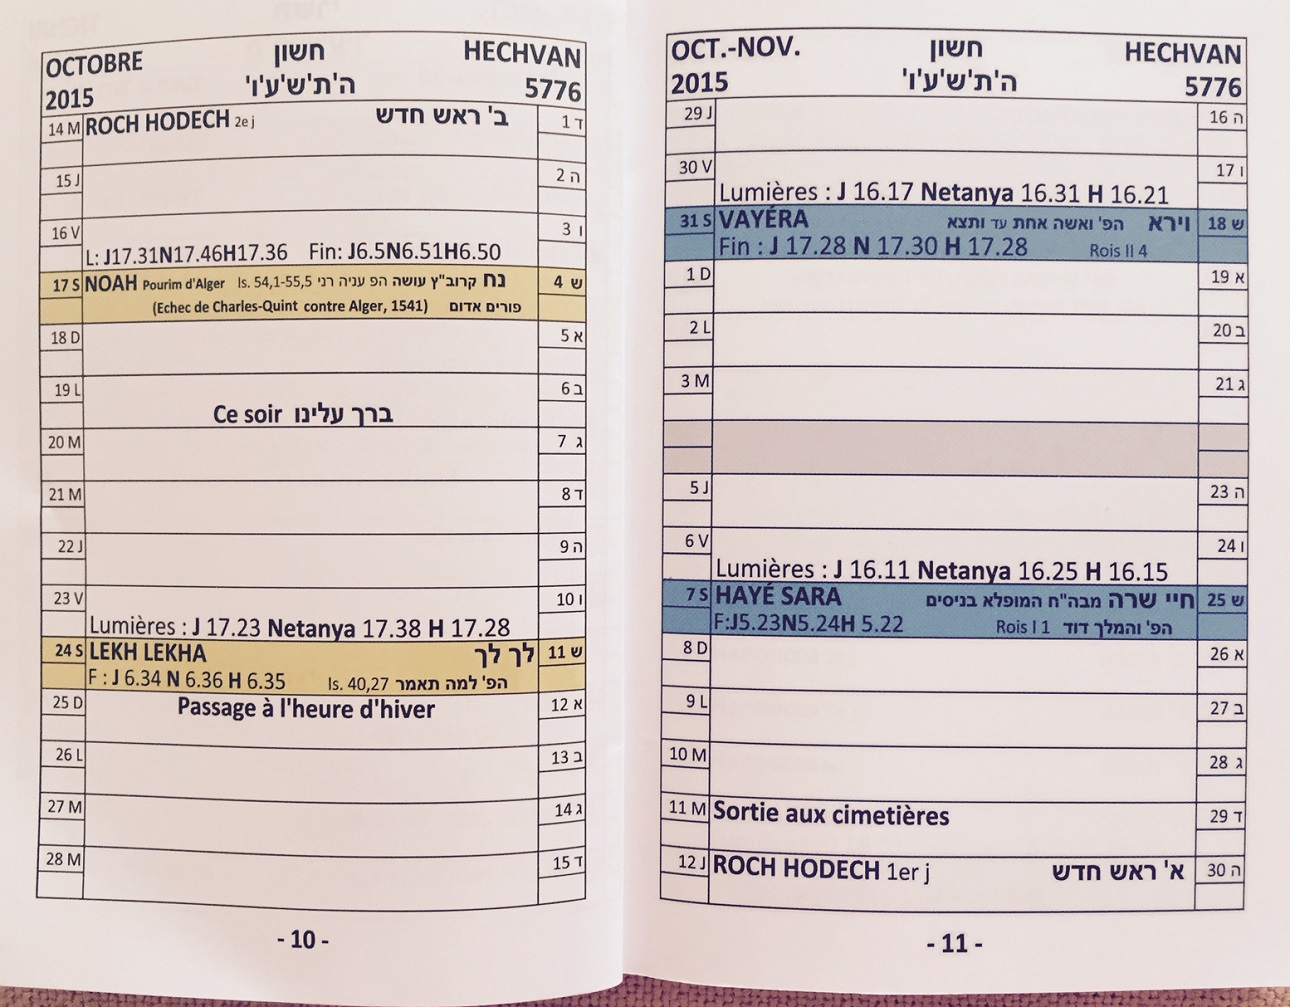 OCTOBRE חשון HECHVAN
2015 ה'ת'ש'ע'ו' 5776
14 M ROCH HODECH 2e j ב' ראש חדש ד 1
15 J ה 2
16 V ו 3
L: J17.31N17.46H17.36 Fin: J6.5N6.51H6.50
17 S NOAH Pourim d'Alger Is. 54,1-55,5 נח קרוב"ץ עושה הפ עניה רני ש 4
(Echec de Charles-Quint contre Alger, 1541) פורים אדום
18 D א 5
19 L ב 6
Ce soir ברך עלינו
20 M ג 7
21 M ד 8
22 J ה 9
23 V ו 10
Lumières : J 17.23 Netanya 17.38 H 17.28
24 S LEKH LEKHA לך לך ש 11
F : J 6.34 N 6.36 H 6.35 Is. 40,27 הפ' למה תאמר
25 D Passage à l'heure d'hiver א 12
26 L ב 13
27 M ג 14
28 M ד 15
- 10 -
OCT.-NOV. חשון HECHVAN
2015 ה'ת'ש'ע'ו' 5776
29 J ה 16
30 V ו 17
Lumières : J 16.17 Netanya 16.31 H 16.21
31 S VAYÉRA וירא הפ' ואשה אחת עד ותצא ש 18
Fin : J 17.28 N 17.30 H 17.28 Rois II 4
1 D א 19
2 L ב 20
3 M ג 21
5 J ה 23
6 V ו 24
Lumières : J 16.11 Netanya 16.25 H 16.15
7 S HAYÉ SARA חיי שרה מבה"ח המופלא בניסים ש 25
F:J5.23N5.24H 5.22 Rois I 1 הפ' והמלך דוד
8 D א 26
9 L ב 27
10 M ג 28
11 M Sortie aux cimetières ד 29
12 J ROCH HODECH 1er j א' ראש חדש ה 30
- 11 -